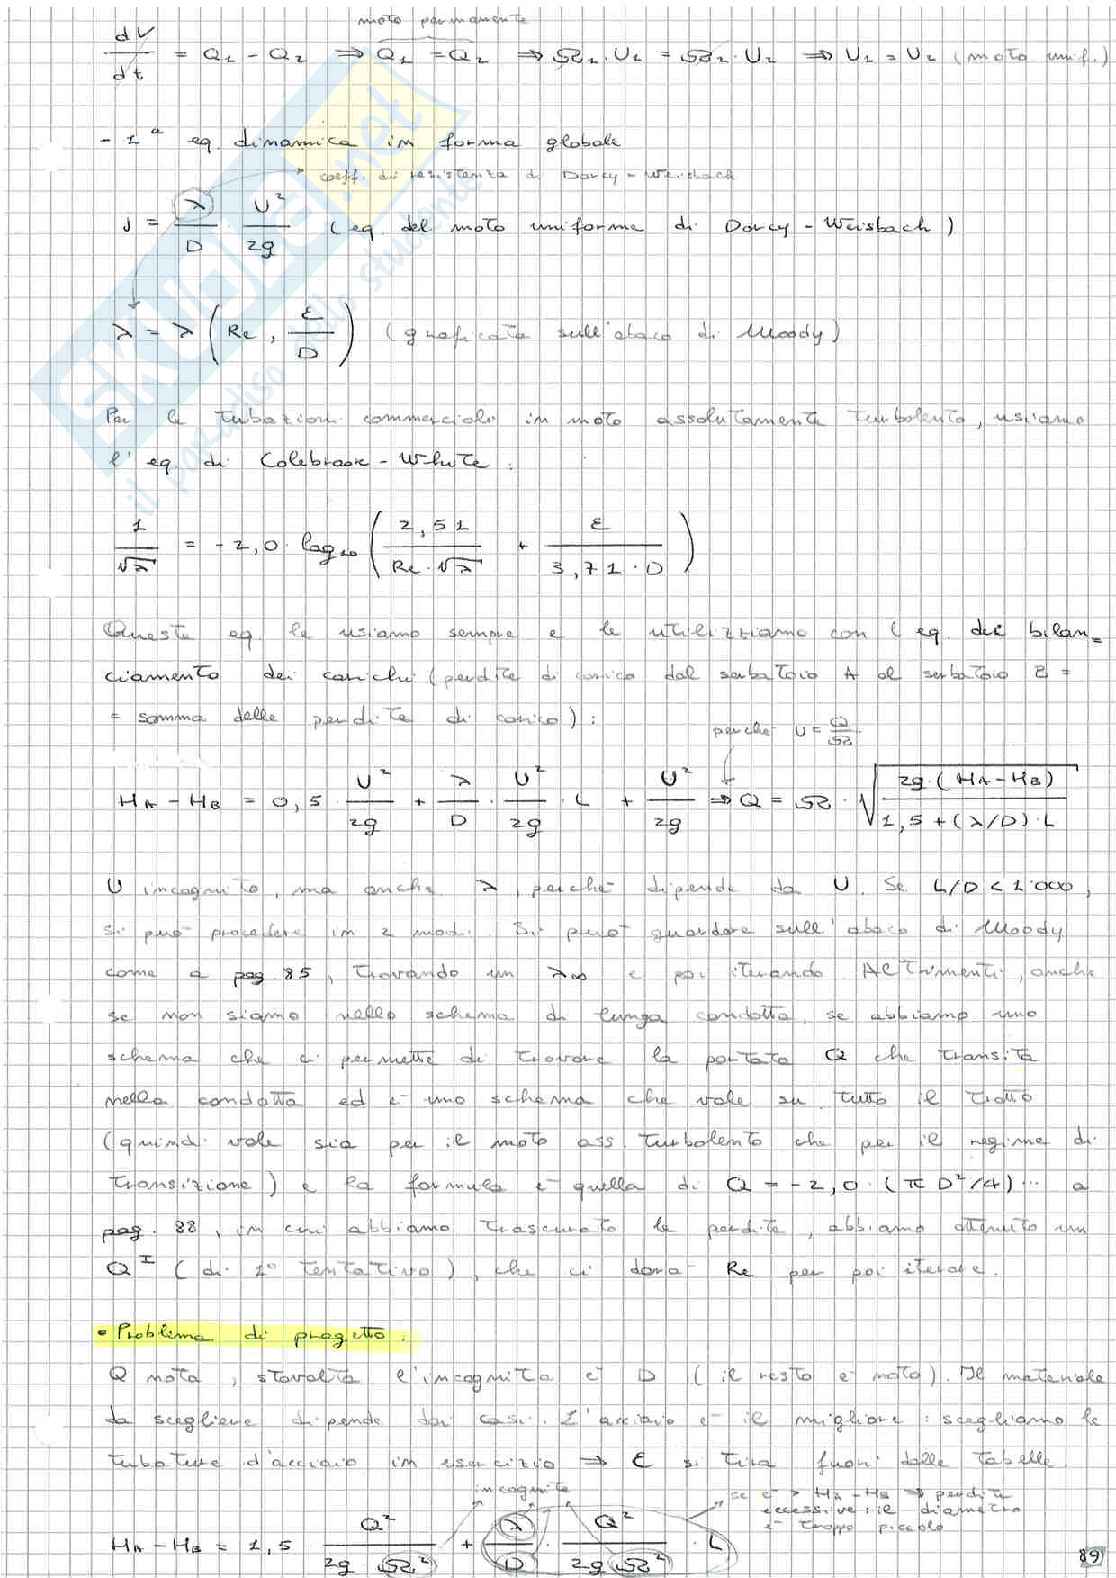 moto permanente
dV/dt = Q1 - Q2 ⇒ Q1 = Q2 ⇒ Ω1 · U1 = Ω2 · U2 ⇒ U1 = U2 (moto unif.)
- 1ª eq. dinamica in forma globale
coeff. di resistenza di Darcy-Weisbach
J = λ/D U²/2g (eq. del moto uniforme di Darcy-Weisbach)
λ = λ (Re, ε/D) (graficata sull'abaco di Moody)
Per le tubazioni commerciali in moto assolutamente turbolento, usiamo
l'eq. di Colebrook-White:
1/√λ = -2,0 · log10 (2,51/(Re · √λ) + ε/(3,71 · D))
Queste eq. le usiamo sempre e le utilizziamo con l'eq. del bilan=
ciamento dei carichi (perdite di carico dal serbatoio A al serbatoio B =
= somma delle perdite di carico):
perché U = Q/Ω
HA - HB = 0,5 · U²/2g + λ/D · U²/2g · L + U²/2g ⇒ Q = Ω · √(2g · (HA - HB)/(1,5 + (λ/D) · L))
U incognito, ma anche λ, perché dipende da U. Se L/D < 1.000,
si può procedere in 2 modi. Si può guardare sull'abaco di Moody
come a pag 85, trovando un λ∞ e poi iterando. Altrimenti, anche
se non siamo nello schema di lunga condotta, se abbiamo uno
schema che ci permette di trovare la portata Q che transita
nella condotta ed è uno schema che vale su tutto il tratto
(quindi vale sia per il moto ass. turbolento che per il regime di
transizione) e la formula è quella di Q = -2,0 · (πD²/4)... a
pag. 88, in cui abbiamo trascurato le perdite, abbiamo ottenuto un
Q^I (di 1° tentativo), che ci darà Re per poi iterare.
• Problema di progetto:
Q nota, stavolta l'incognita è D (il resto è noto). Il materiale
da scegliere dipende dai casi. L'acciaio è il migliore: scegliamo le
tubature d'acciaio in esercizio ⇒ ε si tira fuori dalle tabelle.
incognite
se è > HA - HB ⇒ perdite
eccessive: il diametro
è troppo piccolo
HA - HB = 1,5 Q²/(2g Ω²) + λ/D · Q²/(2g Ω²) · L
89
SKUOLA.net
il paradiso dello studente